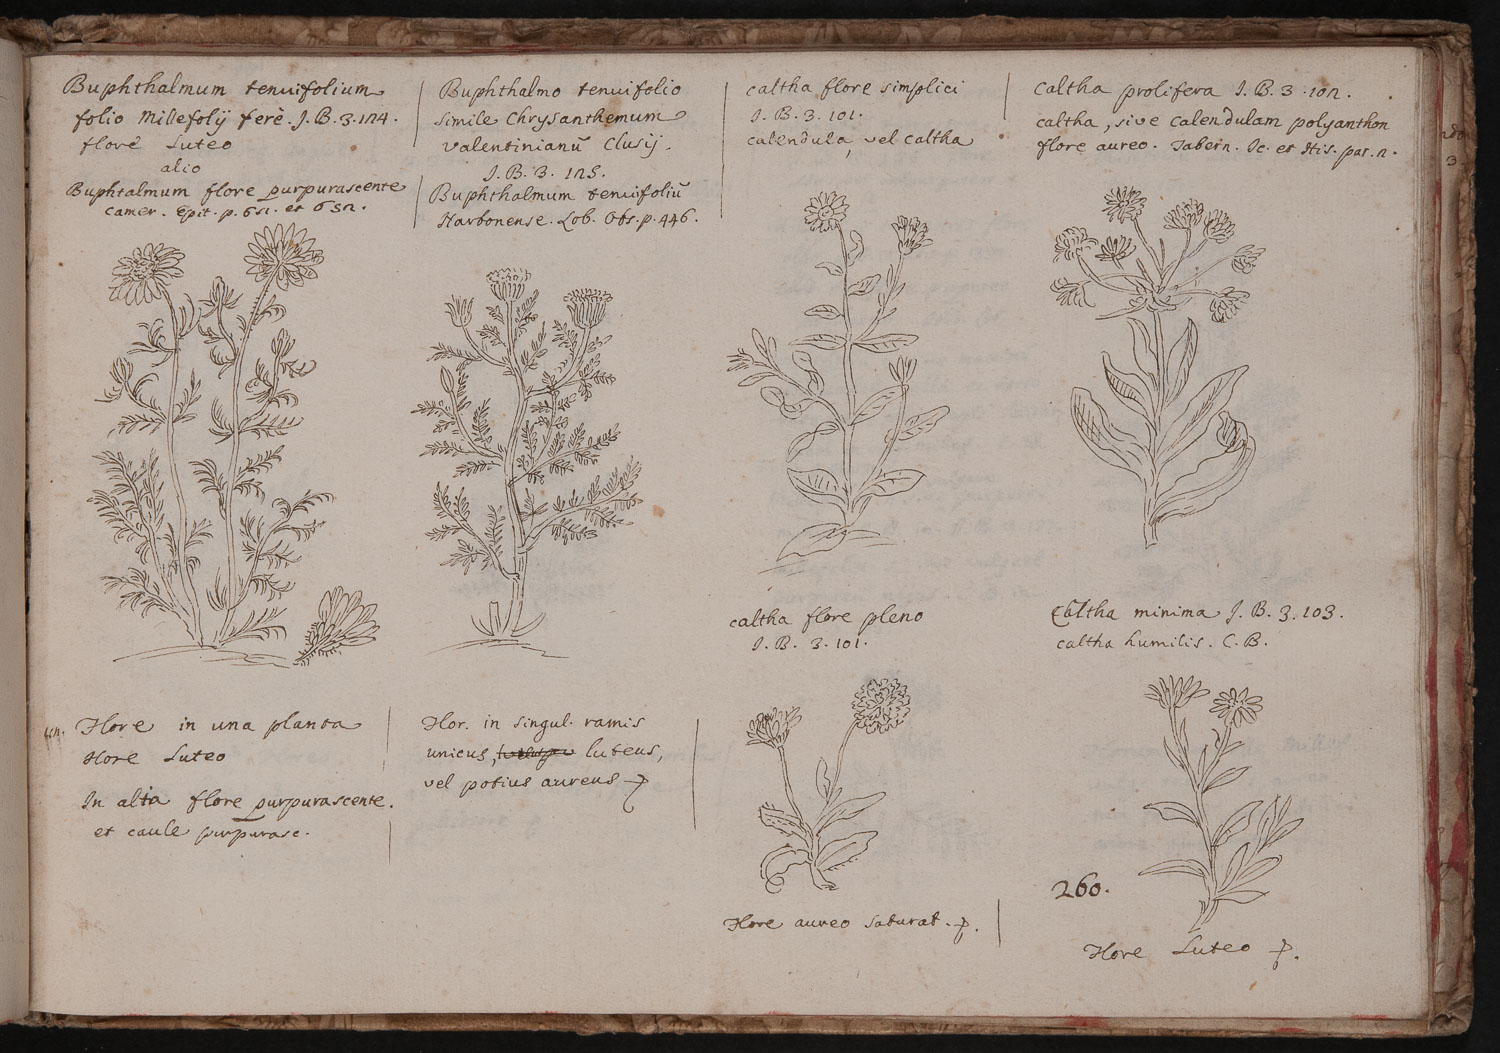 Buphthalmum tenuifolium
folio Millefolij ferè. J. B. 3. 124.
flore Luteo
alio
Buphtalmum flore purpurascente
Camer. Epit. p. 651. et 652.
Flore in una planta
flore Luteo
In alta flore purpurascente.
et caule purpurasc.
Buphthalmo tenuifolio
simile Chrysanthemum
Valentinianũ Clusij.
J. B. 3. 125.
Buphthalmum tenuifoliũ
Narbonense. Lob. Obs. p. 446.
Flor. in singul. ramis
unicus, luteus,
vel potius aureus
caltha flore simplici
J. B. 3. 101.
calendula, vel caltha
caltha flore pleno
J. B. 3. 101.
Flore aureo saturat.
Caltha prolifera J. B. 3. 102.
caltha, sive calendulam polyanthon
flore aureo. Tabern. Ic. et His. par. 2.
Caltha minima J. B. 3. 103.
caltha humilis. C. B.
260.
Flore Luteo